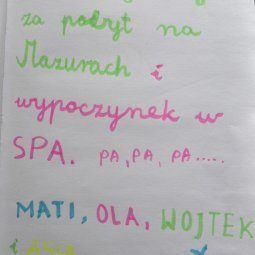 za pobyt na
Mazurach i
wypoczynek w
SPA. PA, PA, PA.....
MATI, OLA, WOJTEK
i